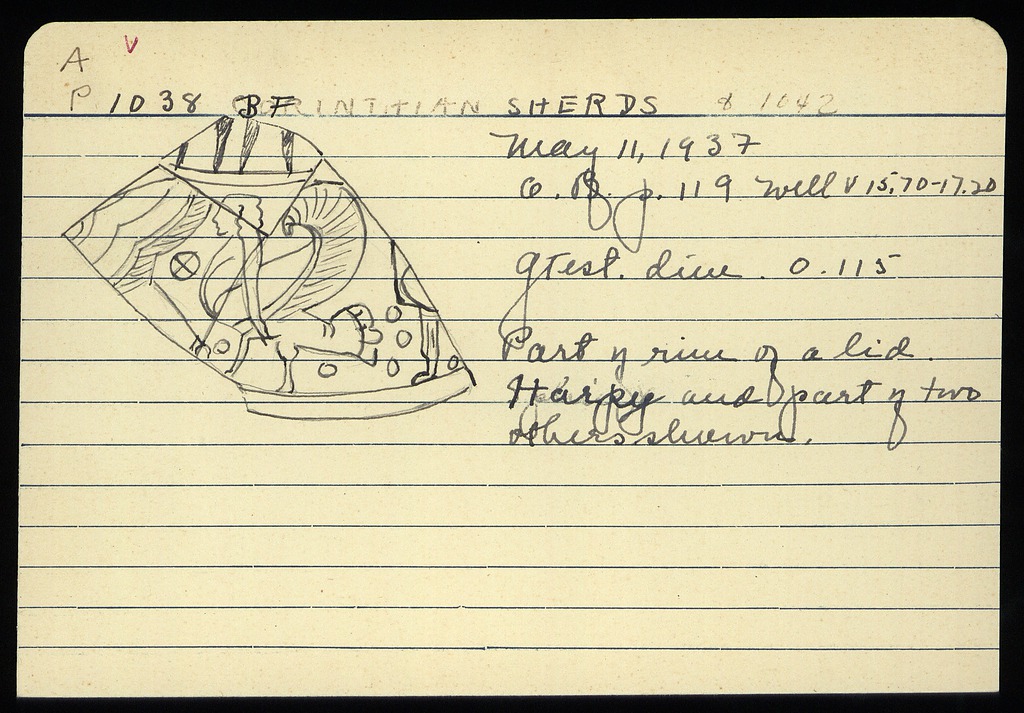 A V
P 1038 BF CORINTHIAN SHERDS & 1042
May 11, 1937
O.B. p. 119 Well V 15,70-17.20
gtest. dim. 0.115
Part of rim of a lid.
Harpy and part of two
others shown.